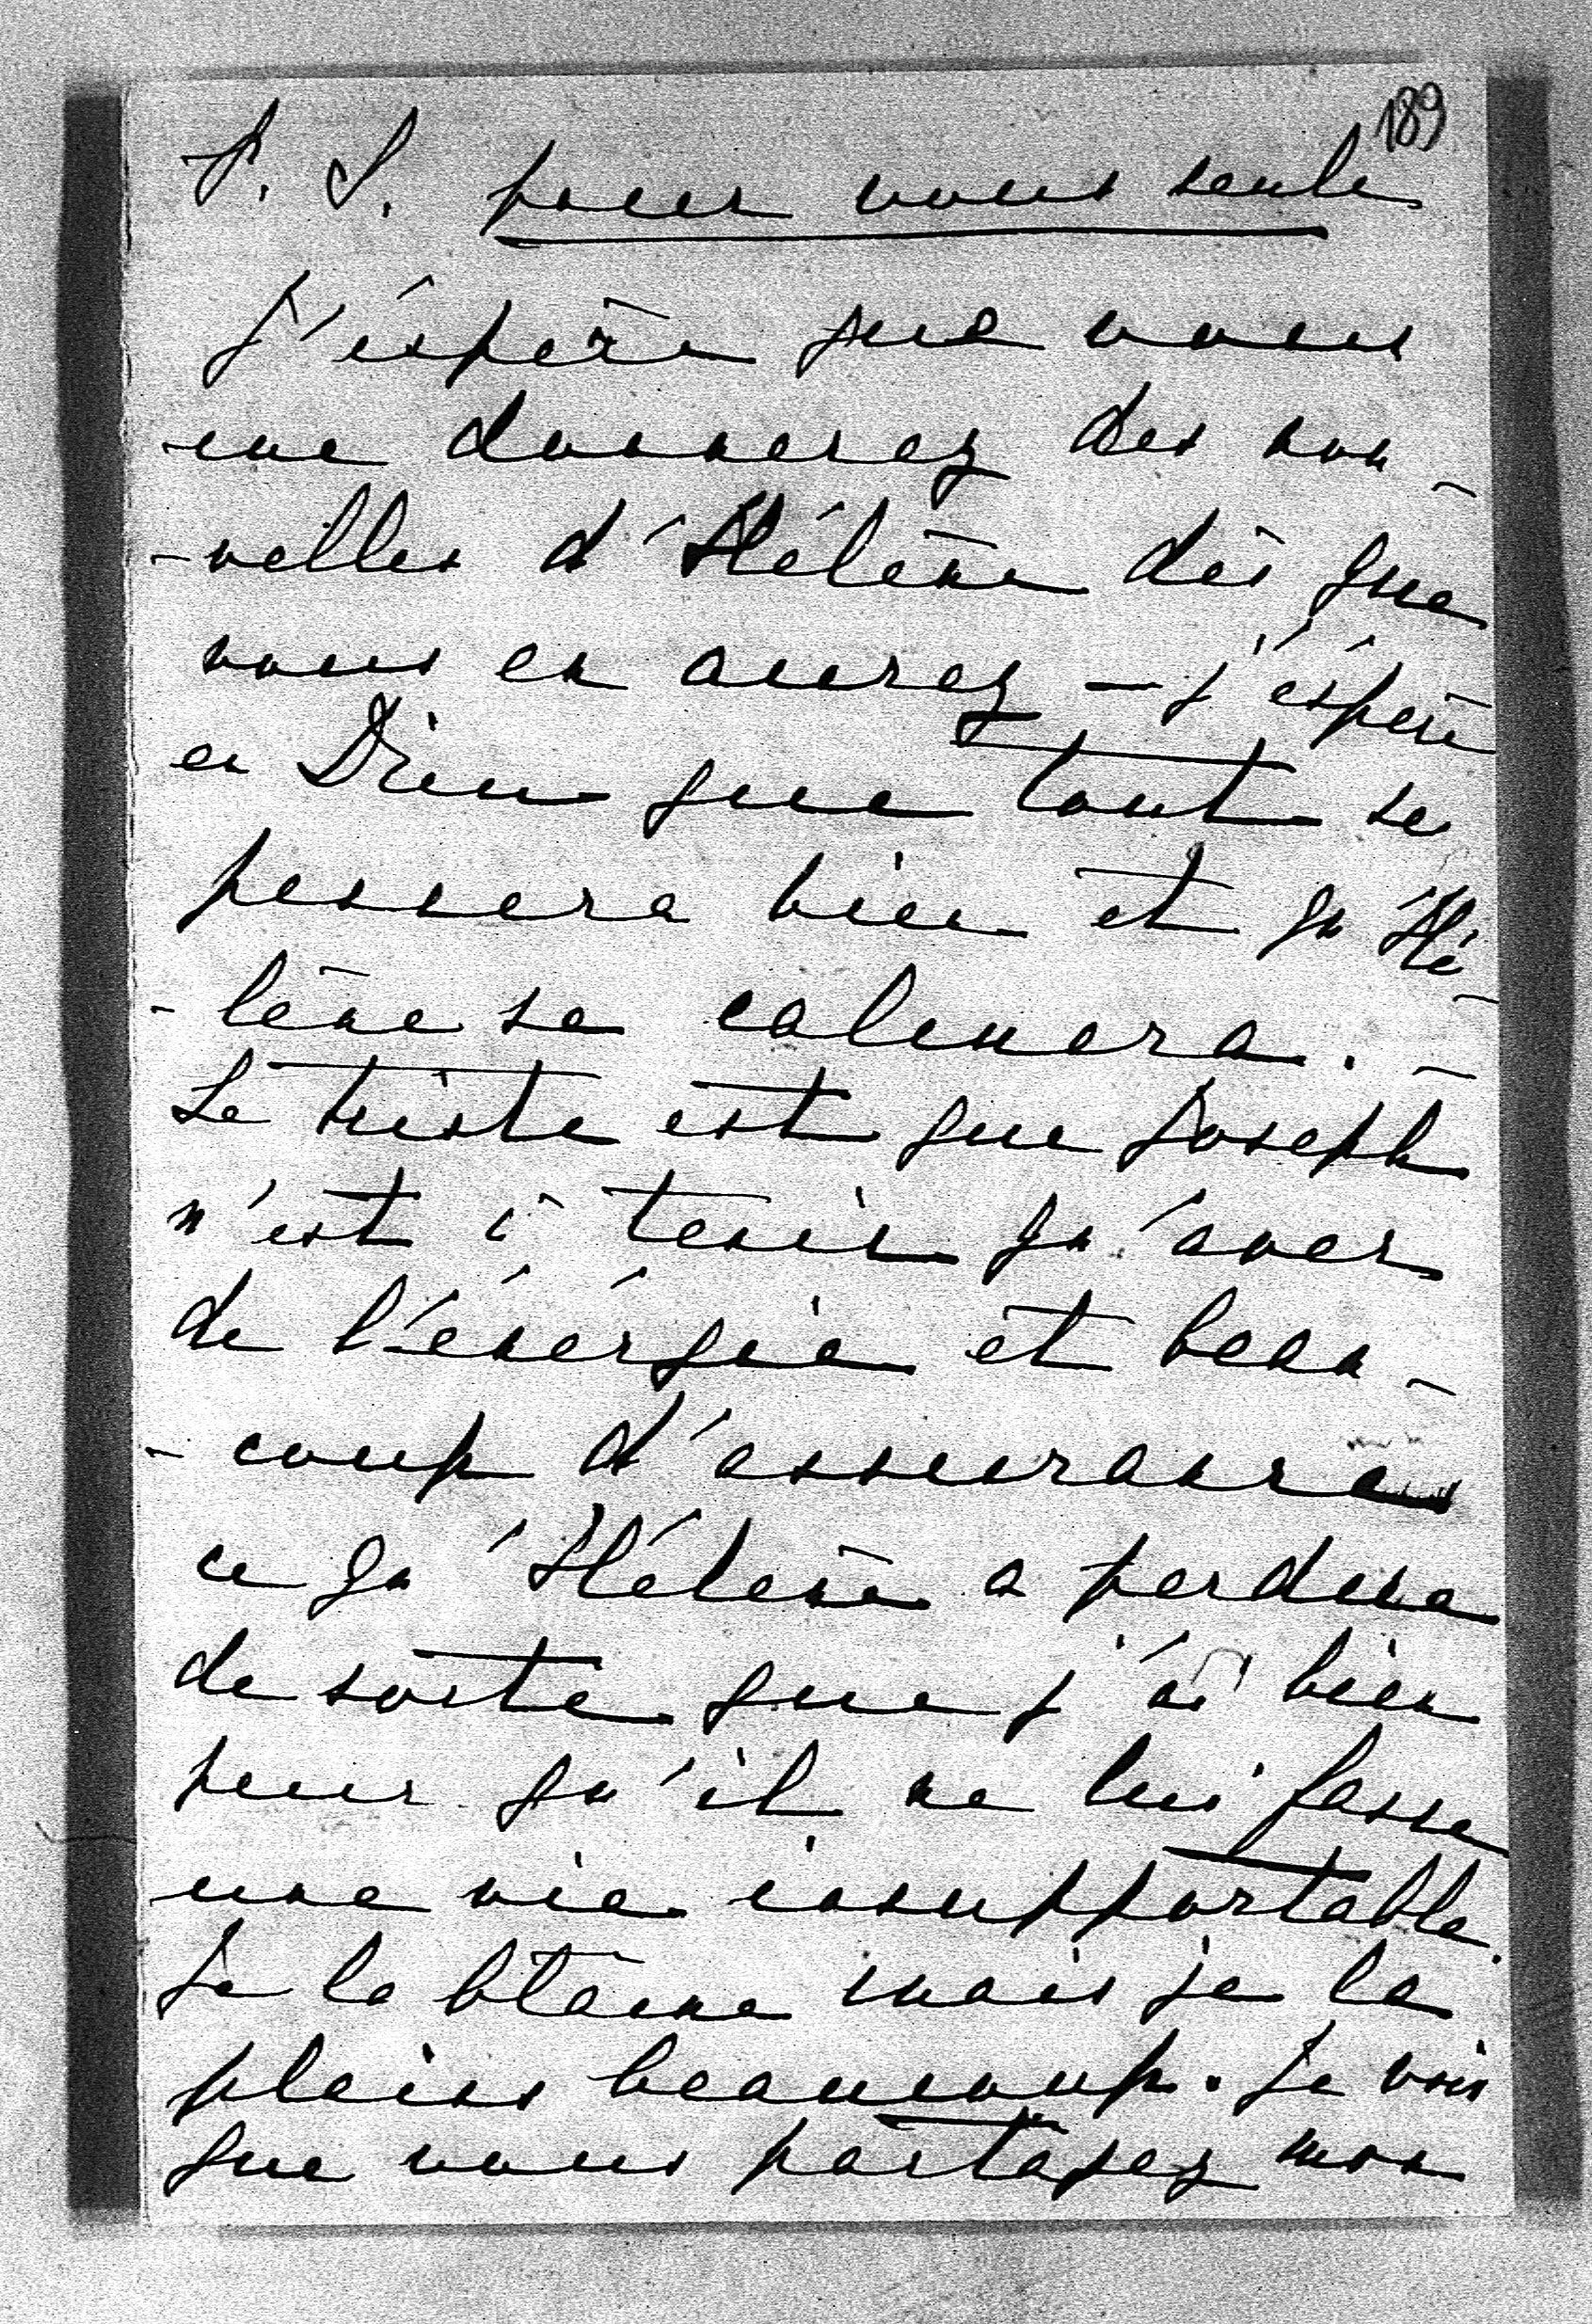 189
P. S. pour vous seule
J'éspère que vous
me donnerez des nou-
-velles d'Hélène dès que
vous en aurez – j'éspère
en Dieu que tout se
passera bien et qu'Hé-
-lène se calmera.
Le triste est que Joseph
n'est à tenir qu'avec
de l'énérgie et beau-
-coup d'assurance
ce qu'Hélène a perdue
de sorte que j'ai bien
peur qu'il ne lui fasse
une vie insupportable.
Je la blâme mais je la
plains beaucoup. Je vois
que vous partagez mon